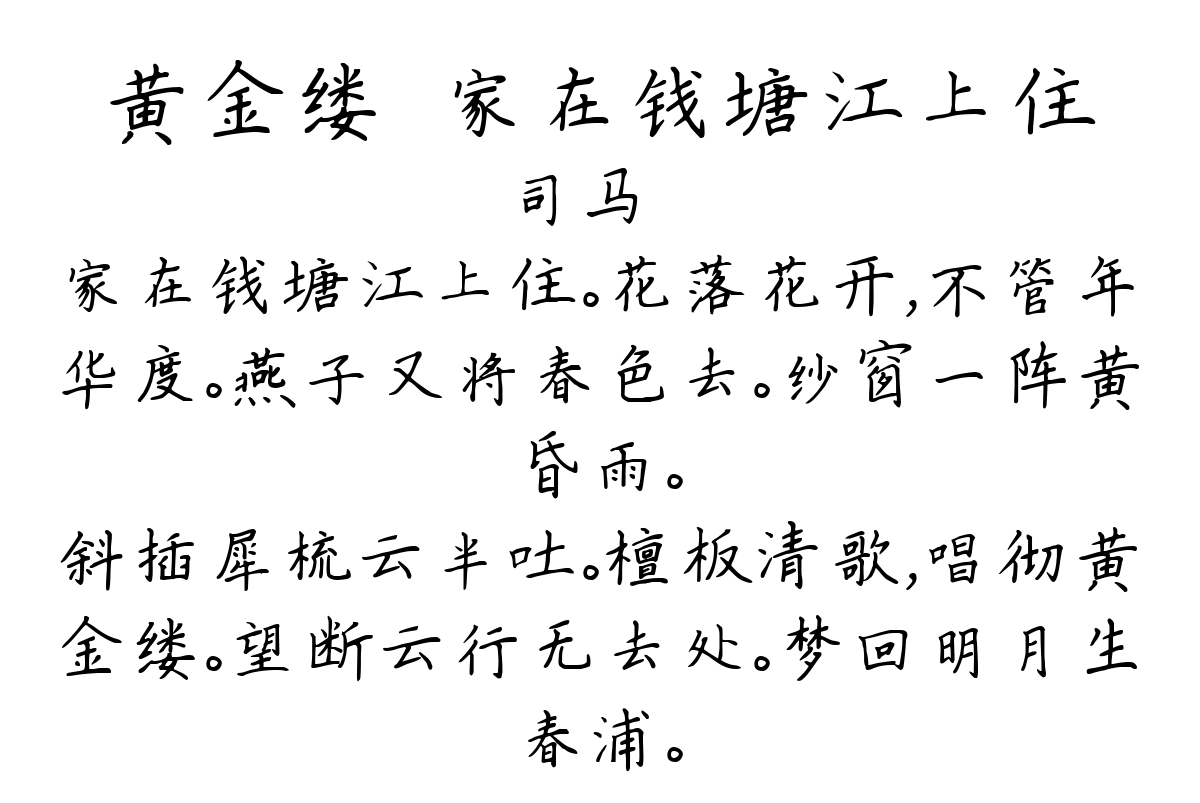 黄金缕 家在钱塘江上住
司马
家在钱塘江上住。花落花开,不管年
华度。燕子又将春色去。纱窗一阵黄
昏雨。
斜插犀梳云半吐。檀板清歌,唱彻黄
金缕。望断云行无去处。梦回明月生
春浦。